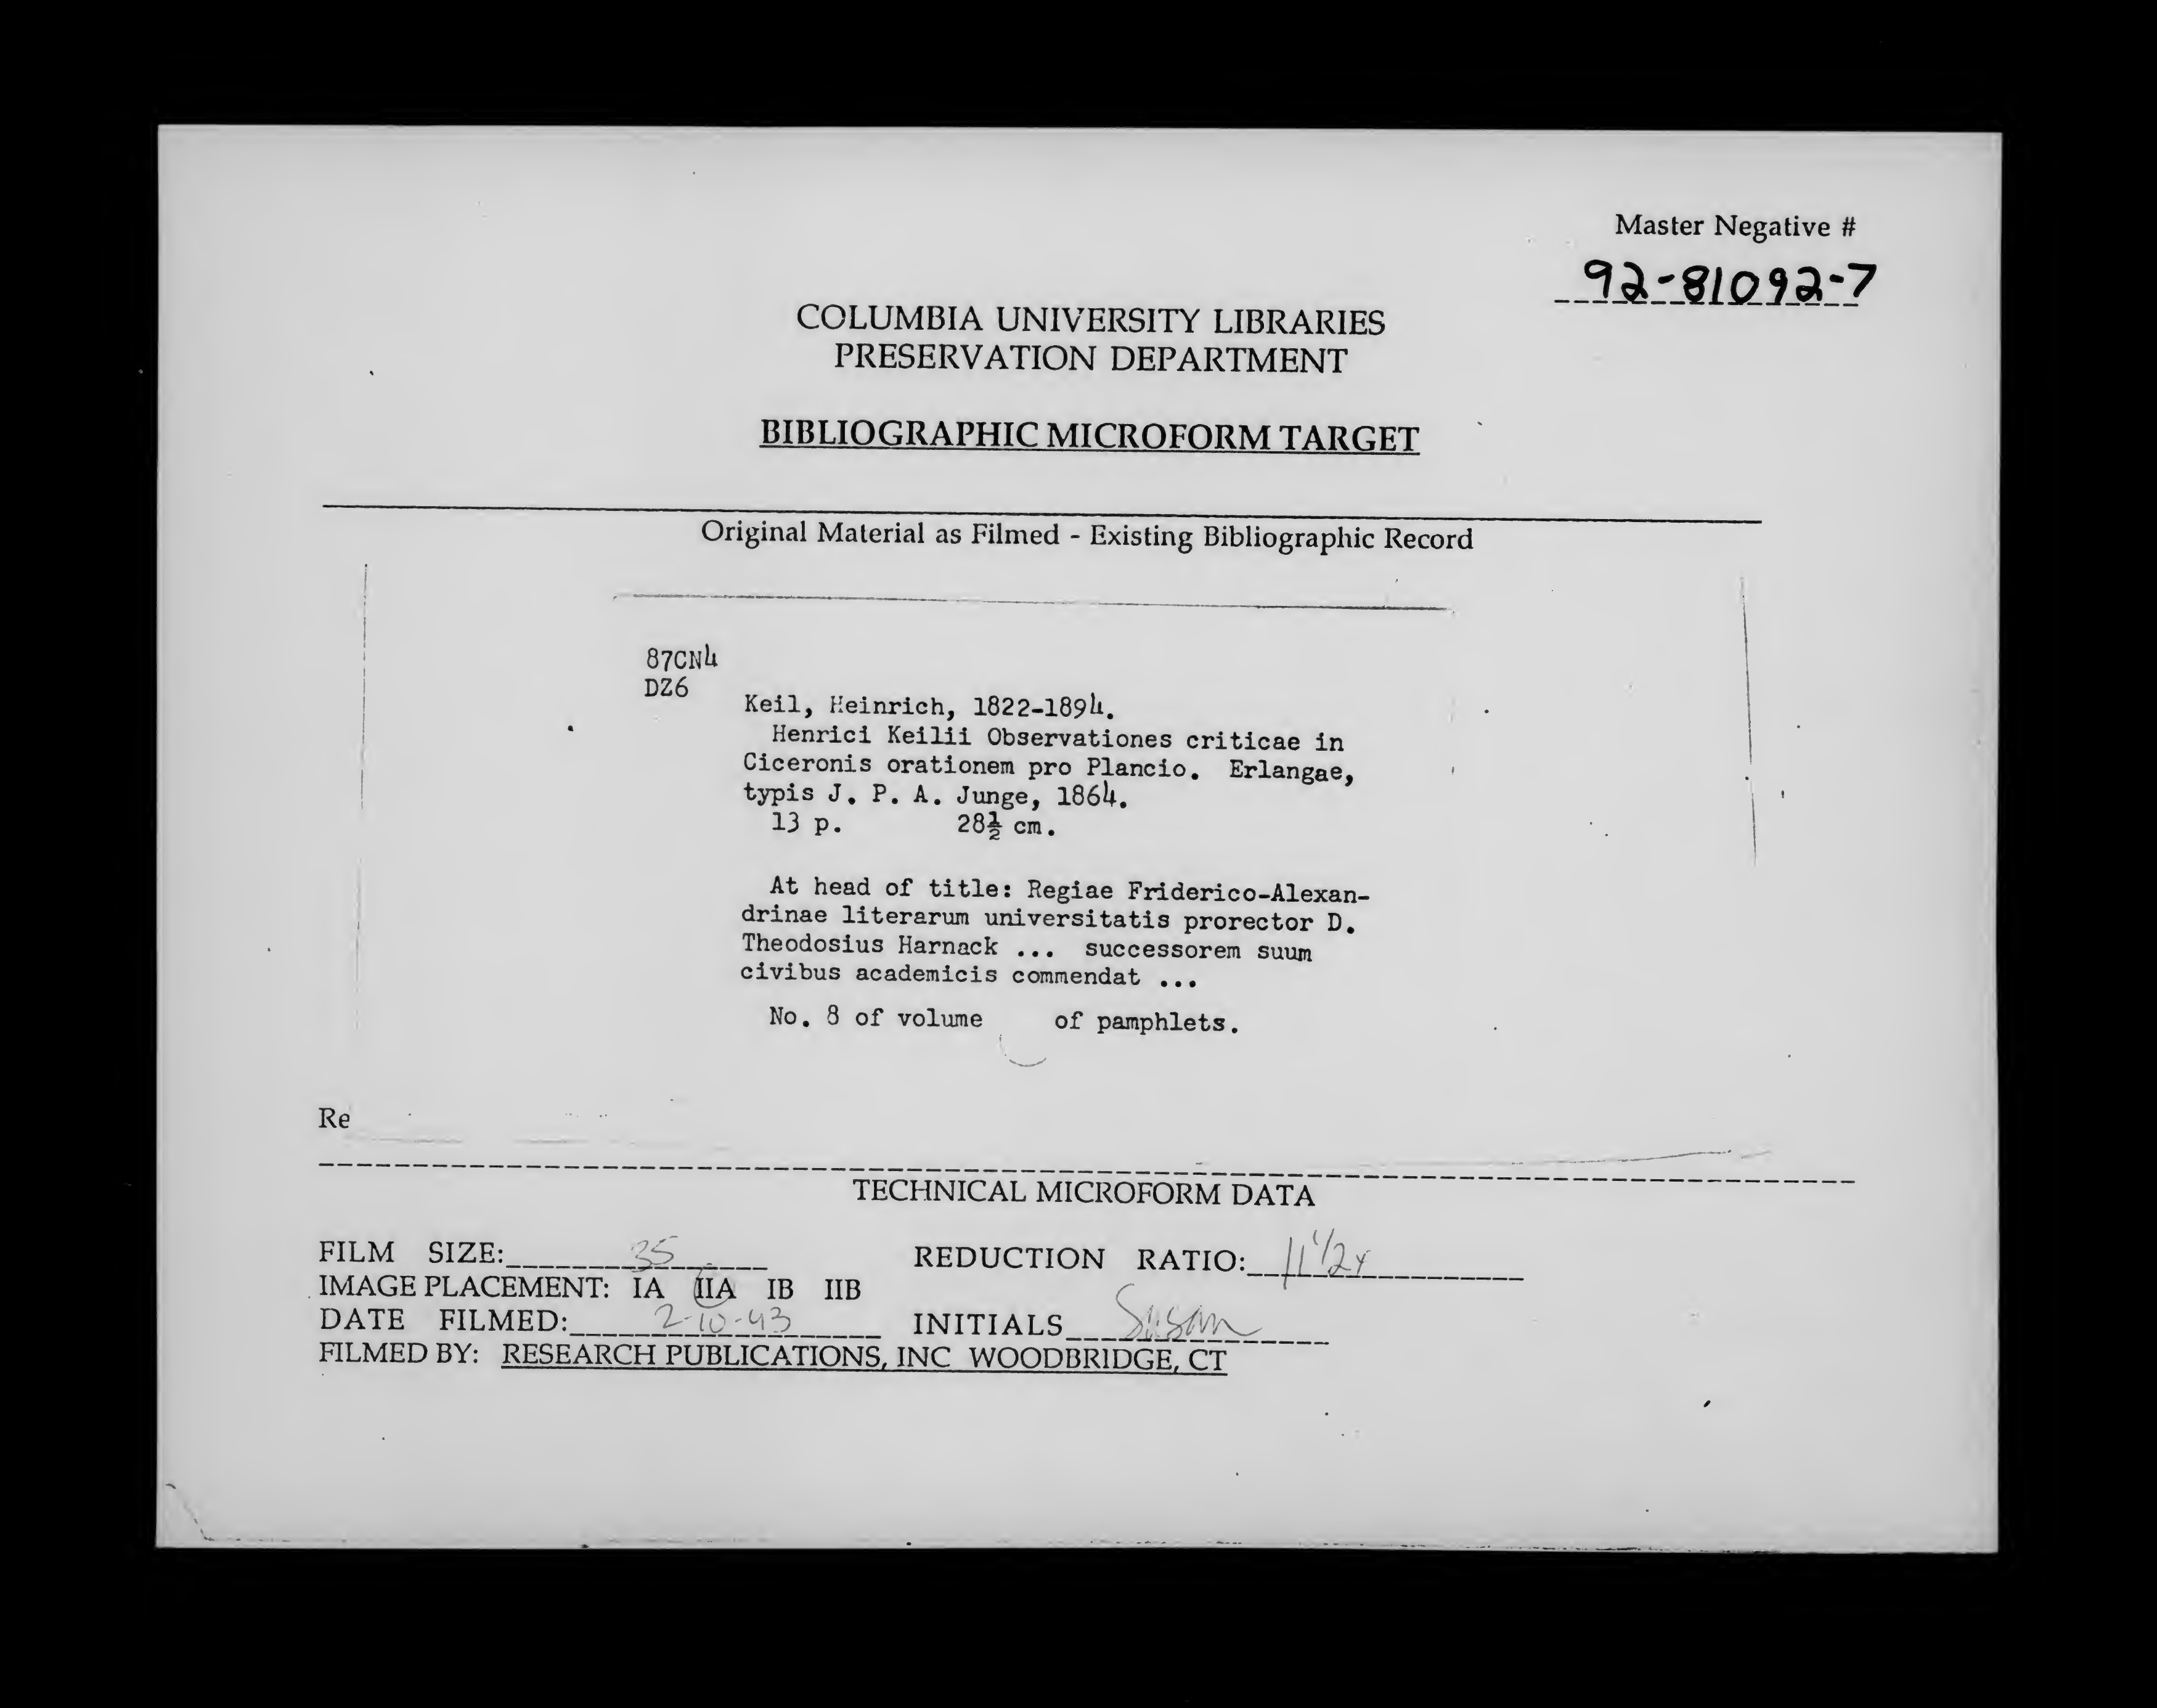 Master Negative #
92-81092-7
COLUMBIA UNIVERSITY LIBRARIES
PRESERVATION DEPARTMENT
BIBLIOGRAPHIC MICROFORM TARGET
Original Material as Filmed - Existing Bibliographic Record
87CN4
DZ6
Keil, Heinrich, 1822-1894.
Henrici Keilii Observationes criticae in
Ciceronis orationem pro Plancio. Erlangae,
typis J. P. A. Junge, 1864.
13 p. 28½ cm.
At head of title: Regiae Friderico-Alexan-
drinae literarum universitatis prorector D.
Theodosius Harnack ... successorem suum
civibus academicis commendat ...
No. 8 of volume of pamphlets.
Re
TECHNICAL MICROFORM DATA
FILM SIZE: 35 REDUCTION RATIO: 11 1/2x
IMAGE PLACEMENT: IA IIA IB IIB
DATE FILMED: 2-10-93 INITIALS Susan
FILMED BY: RESEARCH PUBLICATIONS, INC WOODBRIDGE, CT